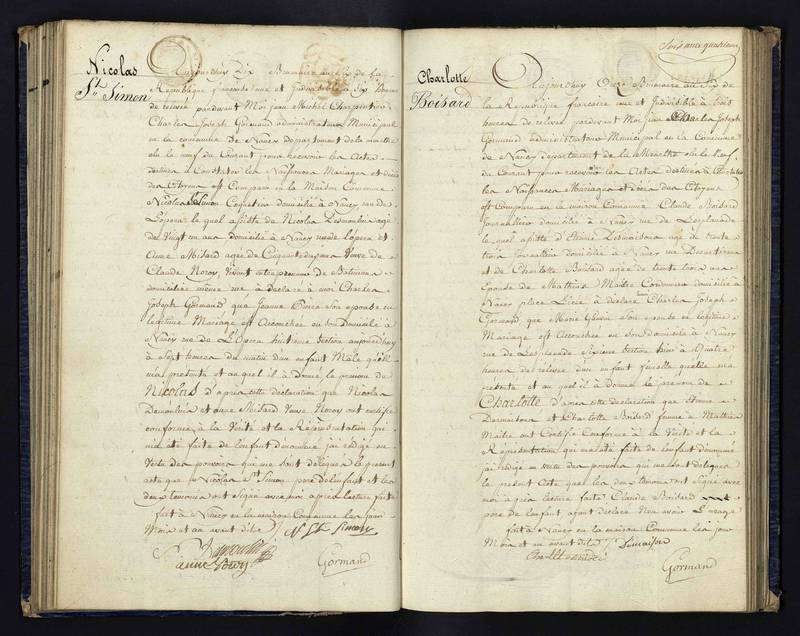 Nicolas
St. Simon
Aujourdhuy Dix Brumaire an Six de La
République francaise une et Indivisible a Six heures
de relevée pardevant Moi Jean Michel Charpentier
Charles Joseph Gormand administrateur Municipal
en la commune de Nancy département de la meurthe
elu le neuf du Courant pour recevoir les Actes
destinés a Constater les Naissances Mariages et decès
des Citoyens est Comparu en la Maison Commune
Nicolas St Simon domicilié à Nancy rue de
L'opera le quel assisté de Nicolas Desmoulin agé
de Vingt un ans domicilié a Nancy rue de l'opera et
Anne Misard agée de Cinquante ans Veuve de
Claude Noroy, Vivant entrepreneur de Batimens
domiciliée même rue à declaré a moi Charles
Joseph Gormand que Jeanne son epouse en
legitime Mariage est Accouchée en son Domicile à
Nancy rue de L'Opera huitieme Section aujourdhuy
à Sept heures du matin d'un enfant Male qu'il
ma presenté et au quel il a donné le prenom de
Nicolas d'après cette declaration que Nicolas
Desmoulin et anne Misard Veuve Noroy ont certifié
conforme à la Verité et la Représentation qui
ma été faite de l'enfant dénommé jai rédigé en
Vertu des pouvoirs qui me sont délégués le present
acte que Nicolas St Simon pere de l'enfant et les
deux temoins ont Signé avec moi après lecture faite
fait à Nancy en la maison Commune les jour
Mois et an avant dits N St Simon
anne
Gormand
Charlotte
Boisard
Aujourdhuy Onze Brumaire an Six de
la République francoise une et Indivisible à trois
heures de relevée pardevant Moi Jean Charles Joseph
Gormand administrateur Municipal en la Commune
de Nancy département de la Meurthe elu le Neuf
du Courant pour recevoir les Actes destinés a Constater
les Naissances Mariages et decès des Citoyens
est Comparu en la maison Commune Claude Boisard
Journallier domicilié à Nancy rue de Lesplanade
le quel assisté d'Etienne Desmaisons agé de trente
trois Journallier domicilié à Nancy rue
et de Charlotte Boisard agée de trente trois ans
Epouse de Mathias Maitre Cordonnier domicilié a
Nancy place a declaré a Charles Joseph
Gormand, que Marie son epouse en legitime
Mariage est Accouchée en son domicile à Nancy
rue de Lesplanade Sixieme Section hier à Quatre
heures de relevée d'un enfant femelle quelle ma
presenté et au quel il a donné le prenom de
Charlotte d'après cette declaration que Etienne
Desmaisons et Charlotte Boisard femme à Mathias
Maitre ont Certifié Conforme à la Verité et la
Représentation qui ma été faite de l'enfant dénommé
jai rédigé en vertu des pouvoirs qui me sont délégués
le present Acte que les deux temoins ont signé avec
moi après lecture faite Claude Boisard
pere de l'enfant ayant declaré n'en avoir L'usage
fait à Nancy en la maison Commune les jour
Mois et an avant dits
Gormand